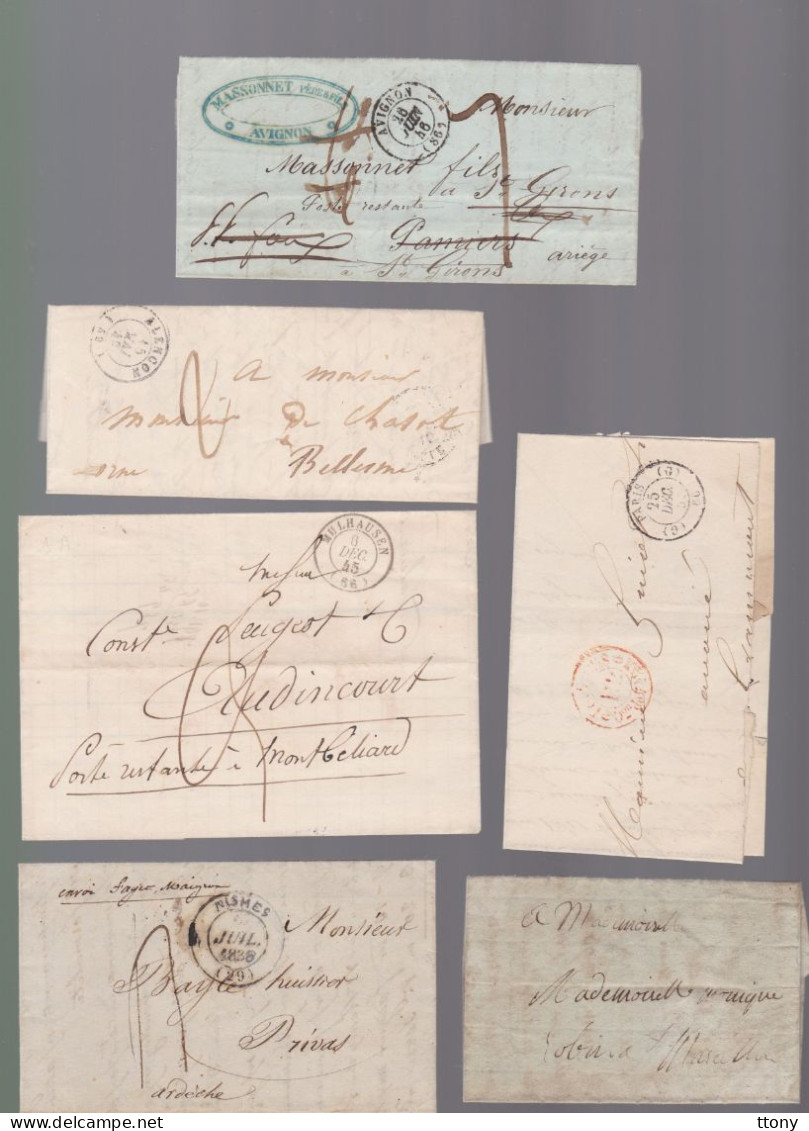 MASSONNET PÈRE & FILS
AVIGNON
AVIGNON
JUIN
46
(86)
Monsieur
Massonnet fils
a St Girons
Poste restante
Pamiers
ariége
à St Girons
ALENCON
15
MAI
A monsieur
monsieur De Chasot
a
Bellesme
orne
MULHAUSEN
6
DEC.
45
(66)
Messieurs
Const. Peugeot & C
Audincourt
Poste restante à Montbéliard
PARIS (G)
25
DEC.
(G)
60
Monsieur
avoué
NISMES
JUIL.
1838
(29)
envoi
Monsieur
Bayle huissier
Privas
ardèche
A Mademoiselle
Mademoiselle
a Marseille
ttony